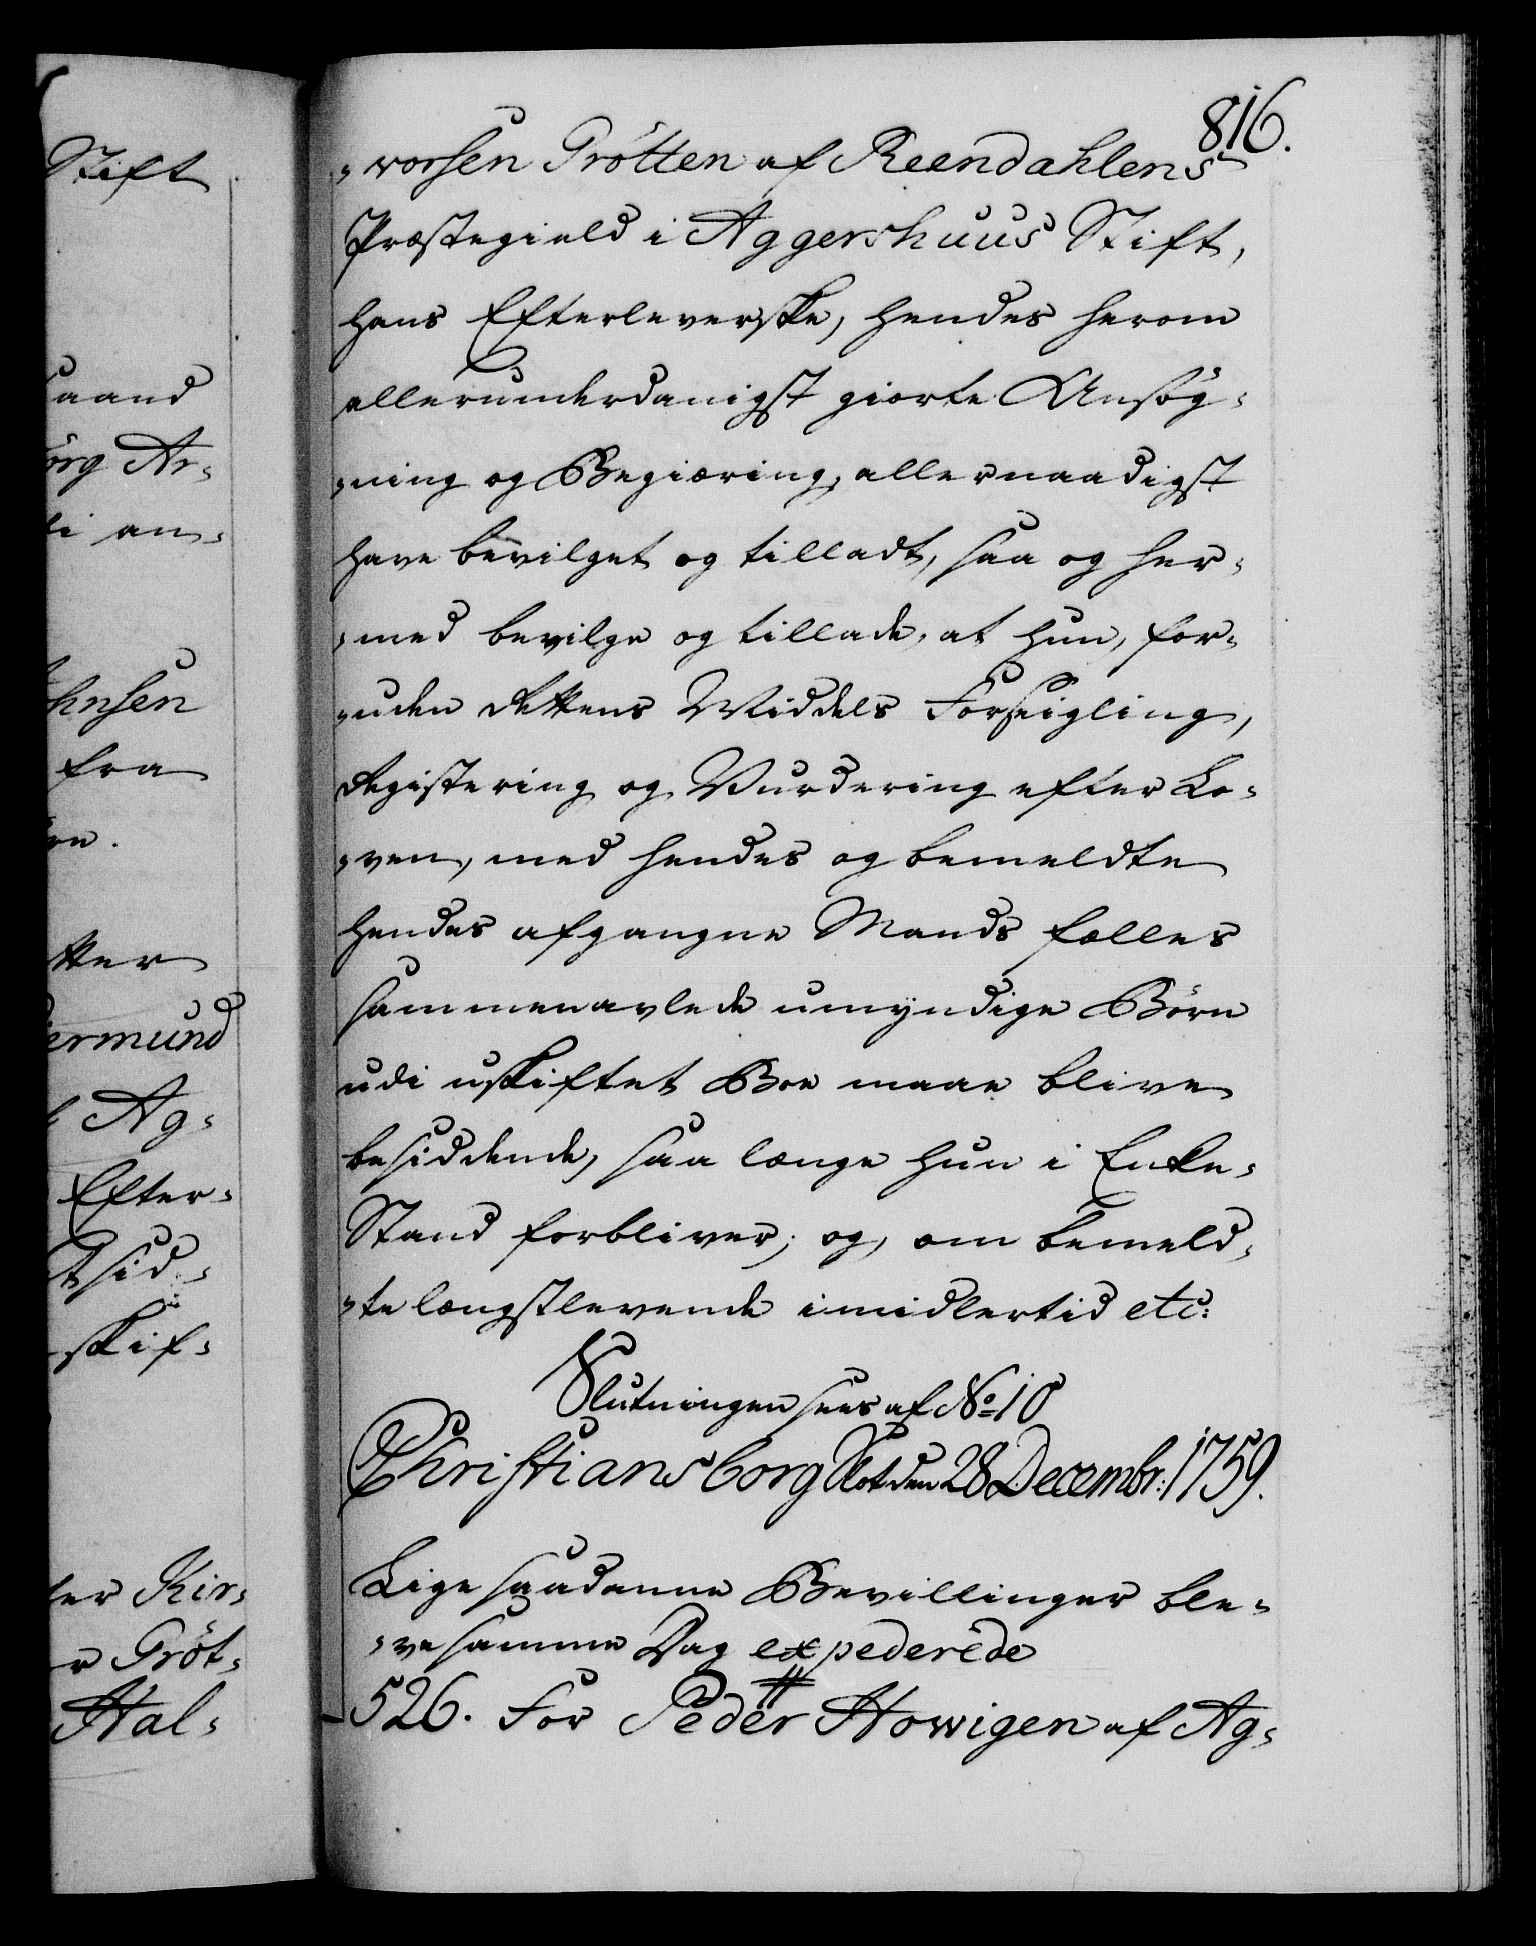 Stift
aand
örg Ar-
i an-
hnsen
fra
tter
ermund
Ag-
Efter-
sid-
skif-
er Kir-
Gröt-
Hal-
816.
-vorsen Grötten af Reendahlens
Præstegield i Aggershuus Stift,
hans Efterleverske, hendes herom
allerunderdanigst giorte Ansøg-
-ning og Begiæring, allernaadigst
have bevilget og tilladt, saa og her-
-med bevilge og tillade, at hun, for-
-uden Rettens Middels Forseigling,
Registering og Vurdering efter Lo-
-ven, med hendes og bemeldte
hendes afgangne Mands fælles
sammenavlede umyndige Børn
udi uskiftet Boe maae blive
besiddende, saa længe hun i Enke-
Stand forbliver; og, om bemeld-
-te længstlevende imidlertid etc:
Slutningen sees af No 10
Christiansborg Slot den 28 Decembr: 1759.
Lige saadanne Bevillinger ble-
-ve samme Dag expederede
526. For Peder Howigen af Ag-